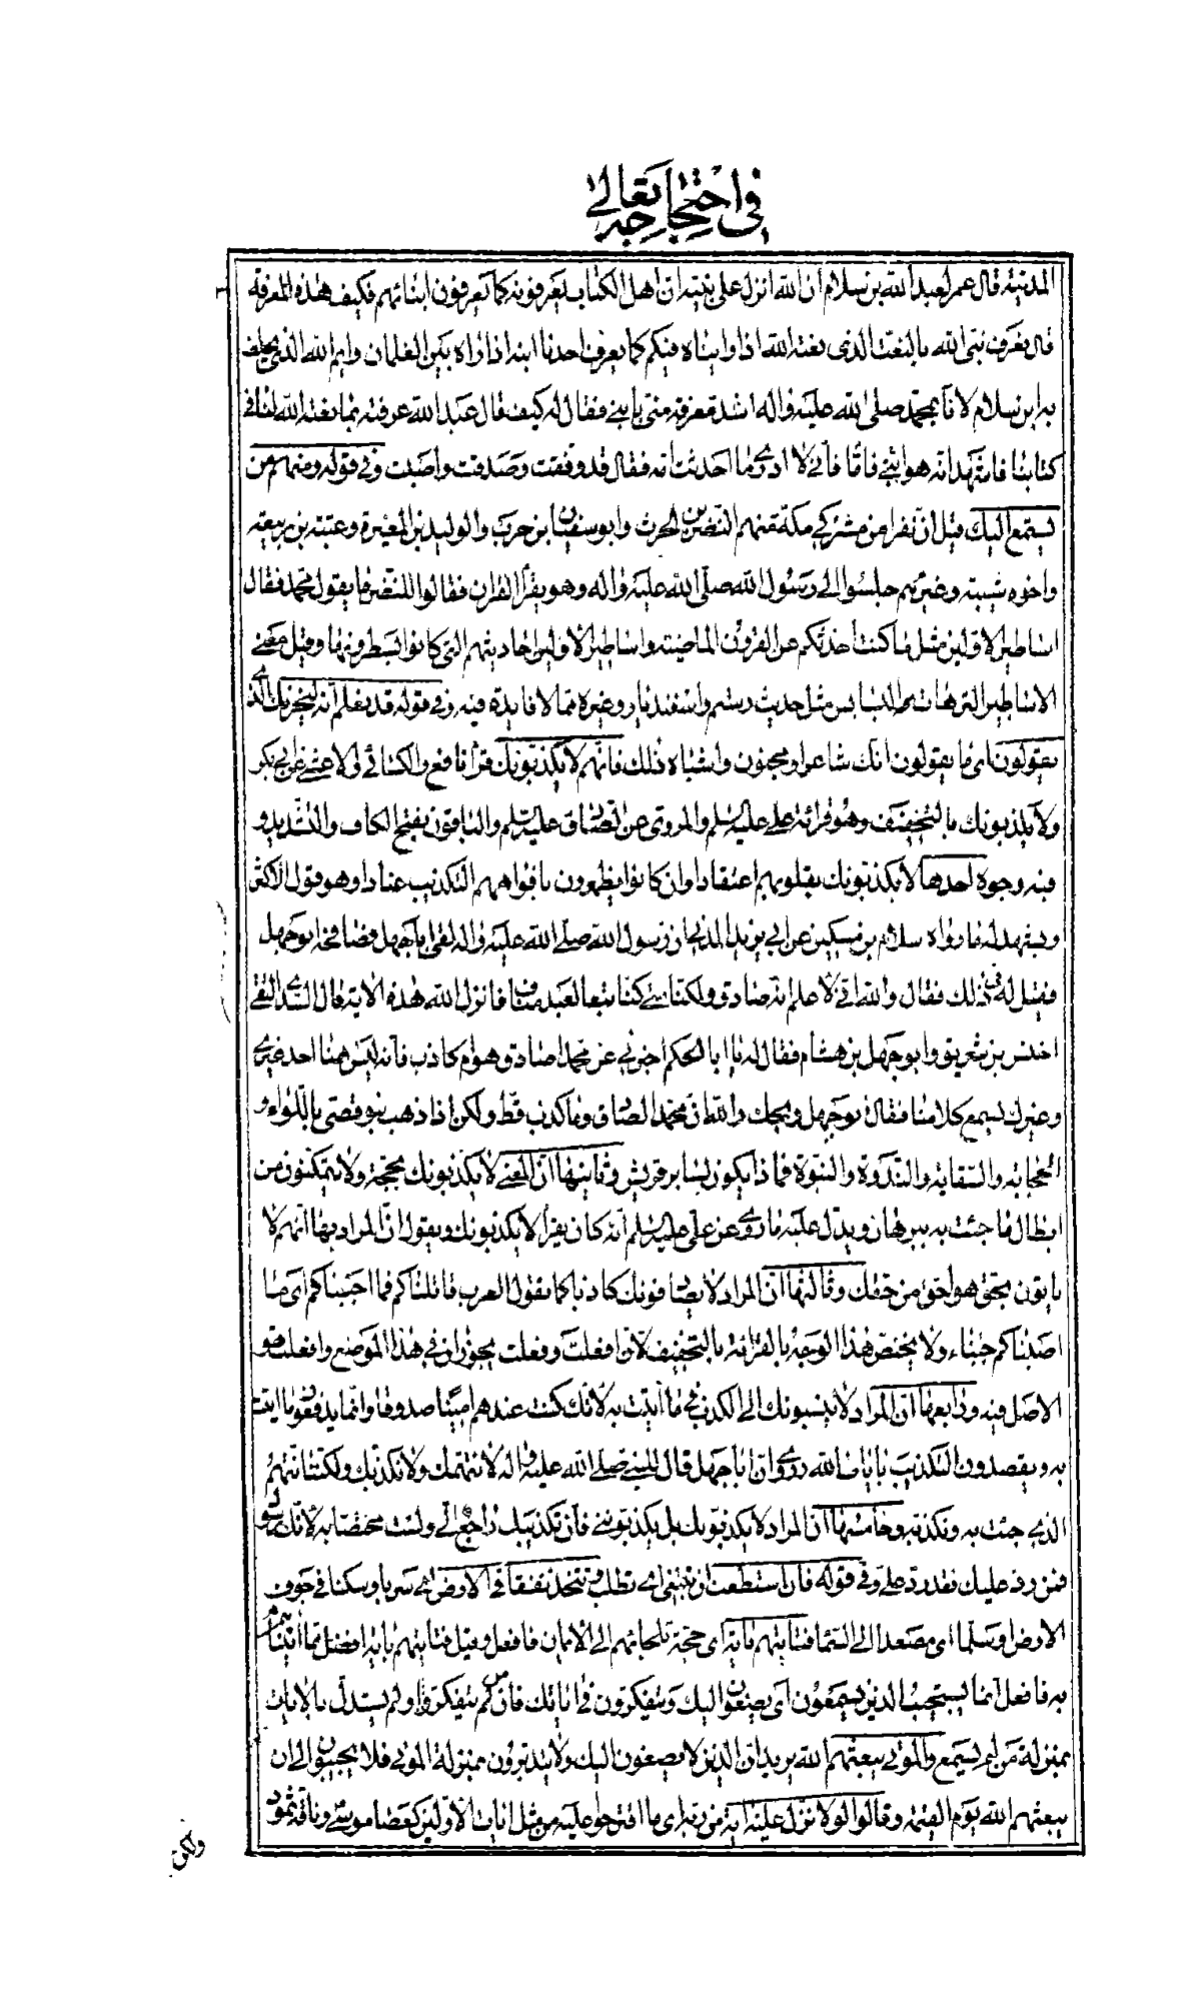 في احتجاجه تعالى
المدينة قال عمر لعبد الله بن سلام ان الله انزل على نبيه ان اهل الكتاب يعرفونه كما يعرفون ابنائهم فكيف هذه المعرفة
قال نعرف نبي الله بالنعت الذي نعته الله اذا رايناه فيكم كما يعرف احدنا ابنه اذا راه بين الغلمان وايم الله الذي يحلف
به ابن سلام لانا بمحمد صلى الله عليه واله اشد معرفة مني بابني فقال له كيف قال عبد الله عرفته بما نعته الله لنا في
كتابنا فاشهد انه هو فاما ابني فاني لا ادري ما احدثت امه فقال قد وفقت وصدقت واصبت وفي قوله ومنهم من
يستمع اليك قيل ان نفرا من مشركي مكة منهم النضر بن الحرث وابو سفيان بن حرب والوليد بن المغيرة وعتبة بن ربيعة
واخوه شيبة وغيرهم جلسوا الى رسول الله صلى الله عليه واله وهو يقرأ القران فقالوا للنضر ما يقول محمد فقال
اساطير الاولين مثل ما كنت احدثكم عن القرون الماضية واساطير الاولين احاديثهم التي كانوا يسطرونها وقيل معنى
الاساطير الترهات والبسابس مثل حديث رستم واسفنديار وغيره مما لا فايدة فيه وفي قوله قد نعلم انه ليحزنك الذي
يقولون اي ما يقولون انك شاعر او مجنون واشباه ذلك فانهم لا يكذبونك قرأ نافع والكسائي والاعشى عن ابي بكر
ولا يكذبونك بالتخفيف وهو قرائة علي عليه السلم والمروي عن الصادق عليه السلم والباقون بفتح الكاف والتشديد و
فيه وجوه احدها لا يكذبونك بقلوبهم اعتقادا وان كانوا يظهرون بافواههم التكذيب عنادا وهو قول الاكثر
ويشهد له ما رواه سلام بن مسكين عن ابي يزيد المدني ان رسول الله صلى الله عليه واله لقى ابا جهل فصافحه ابو جهل
فقيل له في ذلك فقال والله اني لاعلم انه صادق ولكنا متى كنا تبعا لعبد مناف فانزل الله هذه الاية قال السدي التقى
اخنس بن شريق وابو جهل بن هشام فقال له يا ابا الحكم اخبرني عن محمد اصادق هو ام كاذب فانه ليس ههنا احد غيري
وغيرك يسمع كلامنا فقال ابو جهل ويحك والله ان محمدا لصادق وما كذب قط ولكن اذا ذهب بنو قصى باللواء و
الحجابة والسقاية والندوة والنبوة فماذا يكون لساير قريش وثانيها ان المعنى لا يكذبونك بحجة ولا يتمكنون من
ابطال ما جئت به ببرهان ويدل عليه ما روي عن علي عليه السلم انه كان يقرأ لا يكذبونك ويقول ان المراد بها انهم لا
ياتون بحق هو احق من حقك وثالثها ان المراد لا يصادفونك كاذبا كما يقول العرب قاتلناكم فما اجبناكم اي ما
اصبناكم جبناء ولا يختص هذا الوجه بالقرائة بالتخفيف لان افعلت وفعلت يجوزان في هذا الموضع وافعلت هو
الاصل فيه ورابعها ان المراد لا ينسبونك الى الكذب في ما اتيت به لانك كنت عندهم امينا صدوقا وانما يدفعون ما اتيت
به ويقصدون التكذيب بايات الله روي ان ابا جهل قال للنبي صلى الله عليه واله لا نتهمك ولا نكذبك ولكننا نتهم
الذي جئت به ونكذبه وخامسها ان المراد لا يكذبونك بل يكذبونني فان تكذيبك راجع الي ولست مختصا به لانك رسول
فمن رد عليك فقد رد علي وفي قوله فان استطعت ان تبتغي اي تطلب وتتخذ نفقا في الارض اي سربا ومسكنا في جوف
الارض او سلما اي مصعدا الى السما فتاتيهم باية اي حجة تلجائهم الى الايمان فافعل وقيل فتاتيهم باية افضل مما اتيناهم
به فافعل انما يستجيب الذين يسمعون اي يصغون اليك ويتفكرون في اياتك فان من لم يتفكر ولم يستدل بالايات
بمنزلة من لم يسمع والموتى يبعثهم الله يريد ان الذين لا يصغون اليك ولا يتدبرون بمنزلة الموتى فلا يجيبون الى ان
يبعثهم الله يوم القيمة وقالوا لولا نزل عليه اية من ربه اي ما اقترحوا عليه من مثل ايات الاولين كعصا موسى وناقة ثمود
ولكن